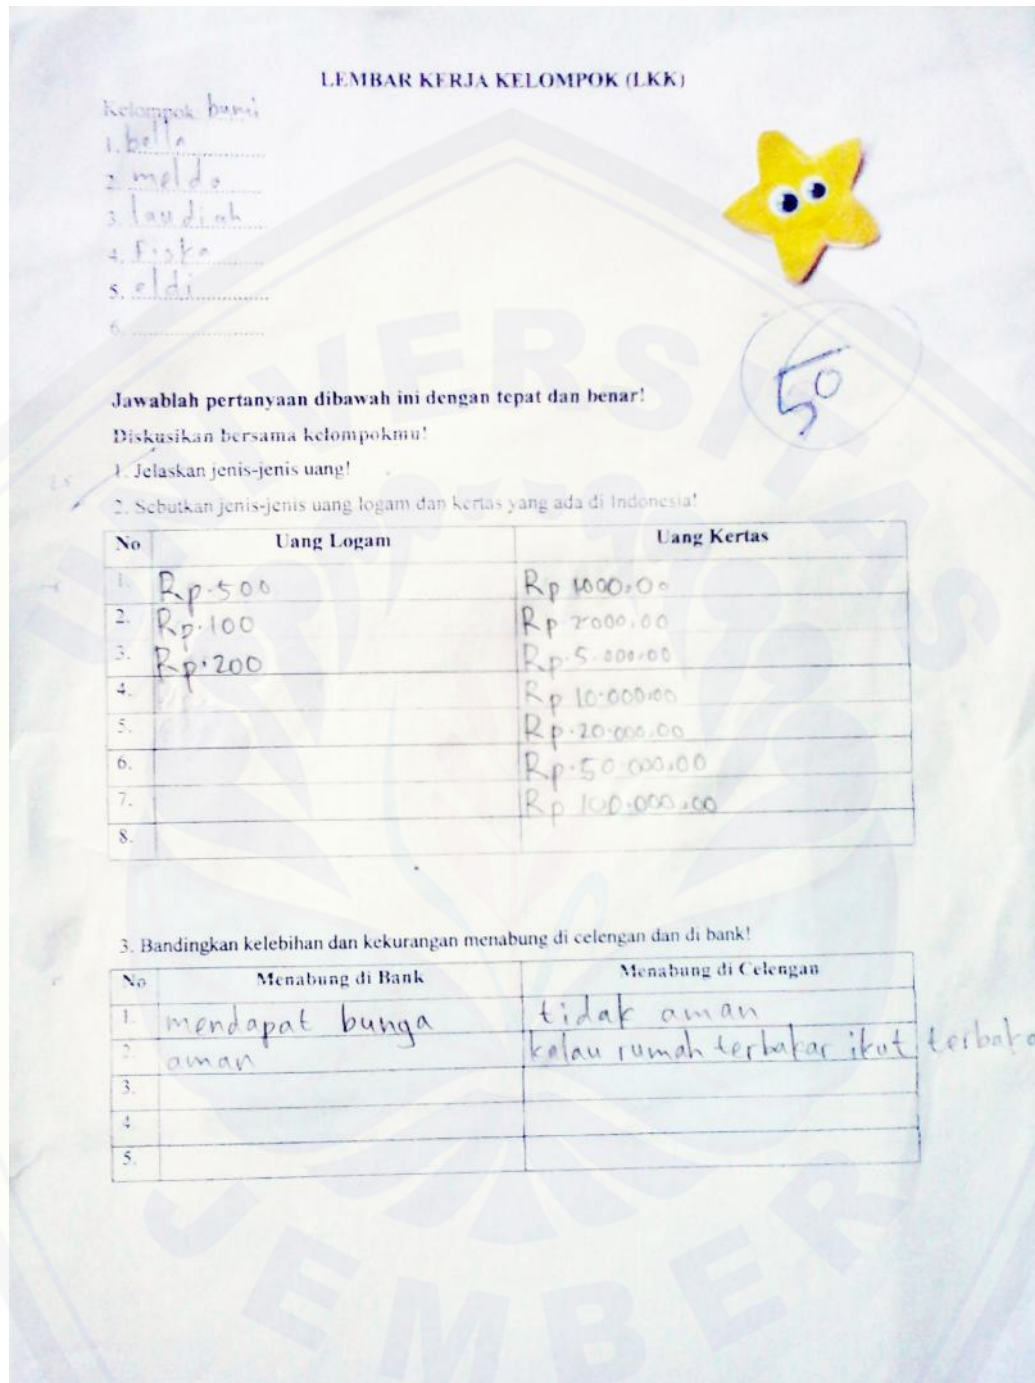 LEMBAR KERJA KELOMPOK (LKK)
Kelompok: bumi
1. bella
2. meldo
3. laudiah
4. Fiska
5. eldi
6.
50
Jawablah pertanyaan dibawah ini dengan tepat dan benar!
Diskusikan bersama kelompokmu!
1. Jelaskan jenis-jenis uang!
2. Sebutkan jenis-jenis uang logam dan kertas yang ada di Indonesia!
No Uang Logam Uang Kertas
1. Rp.500 Rp 1000,00
2. Rp.100 Rp 2000,00
3. Rp.200 Rp.5.000,00
4. Rp 10.000,00
5. Rp.20.000,00
6. Rp.50.000,00
7. Rp 100.000,00
8.
3. Bandingkan kelebihan dan kekurangan menabung di celengan dan di bank!
No Menabung di Bank Menabung di Celengan
1. mendapat bunga tidak aman
2. aman kalau rumah terbakar ikut terbaka
3.
4
5.
UNIVERSITAS
JEMBER